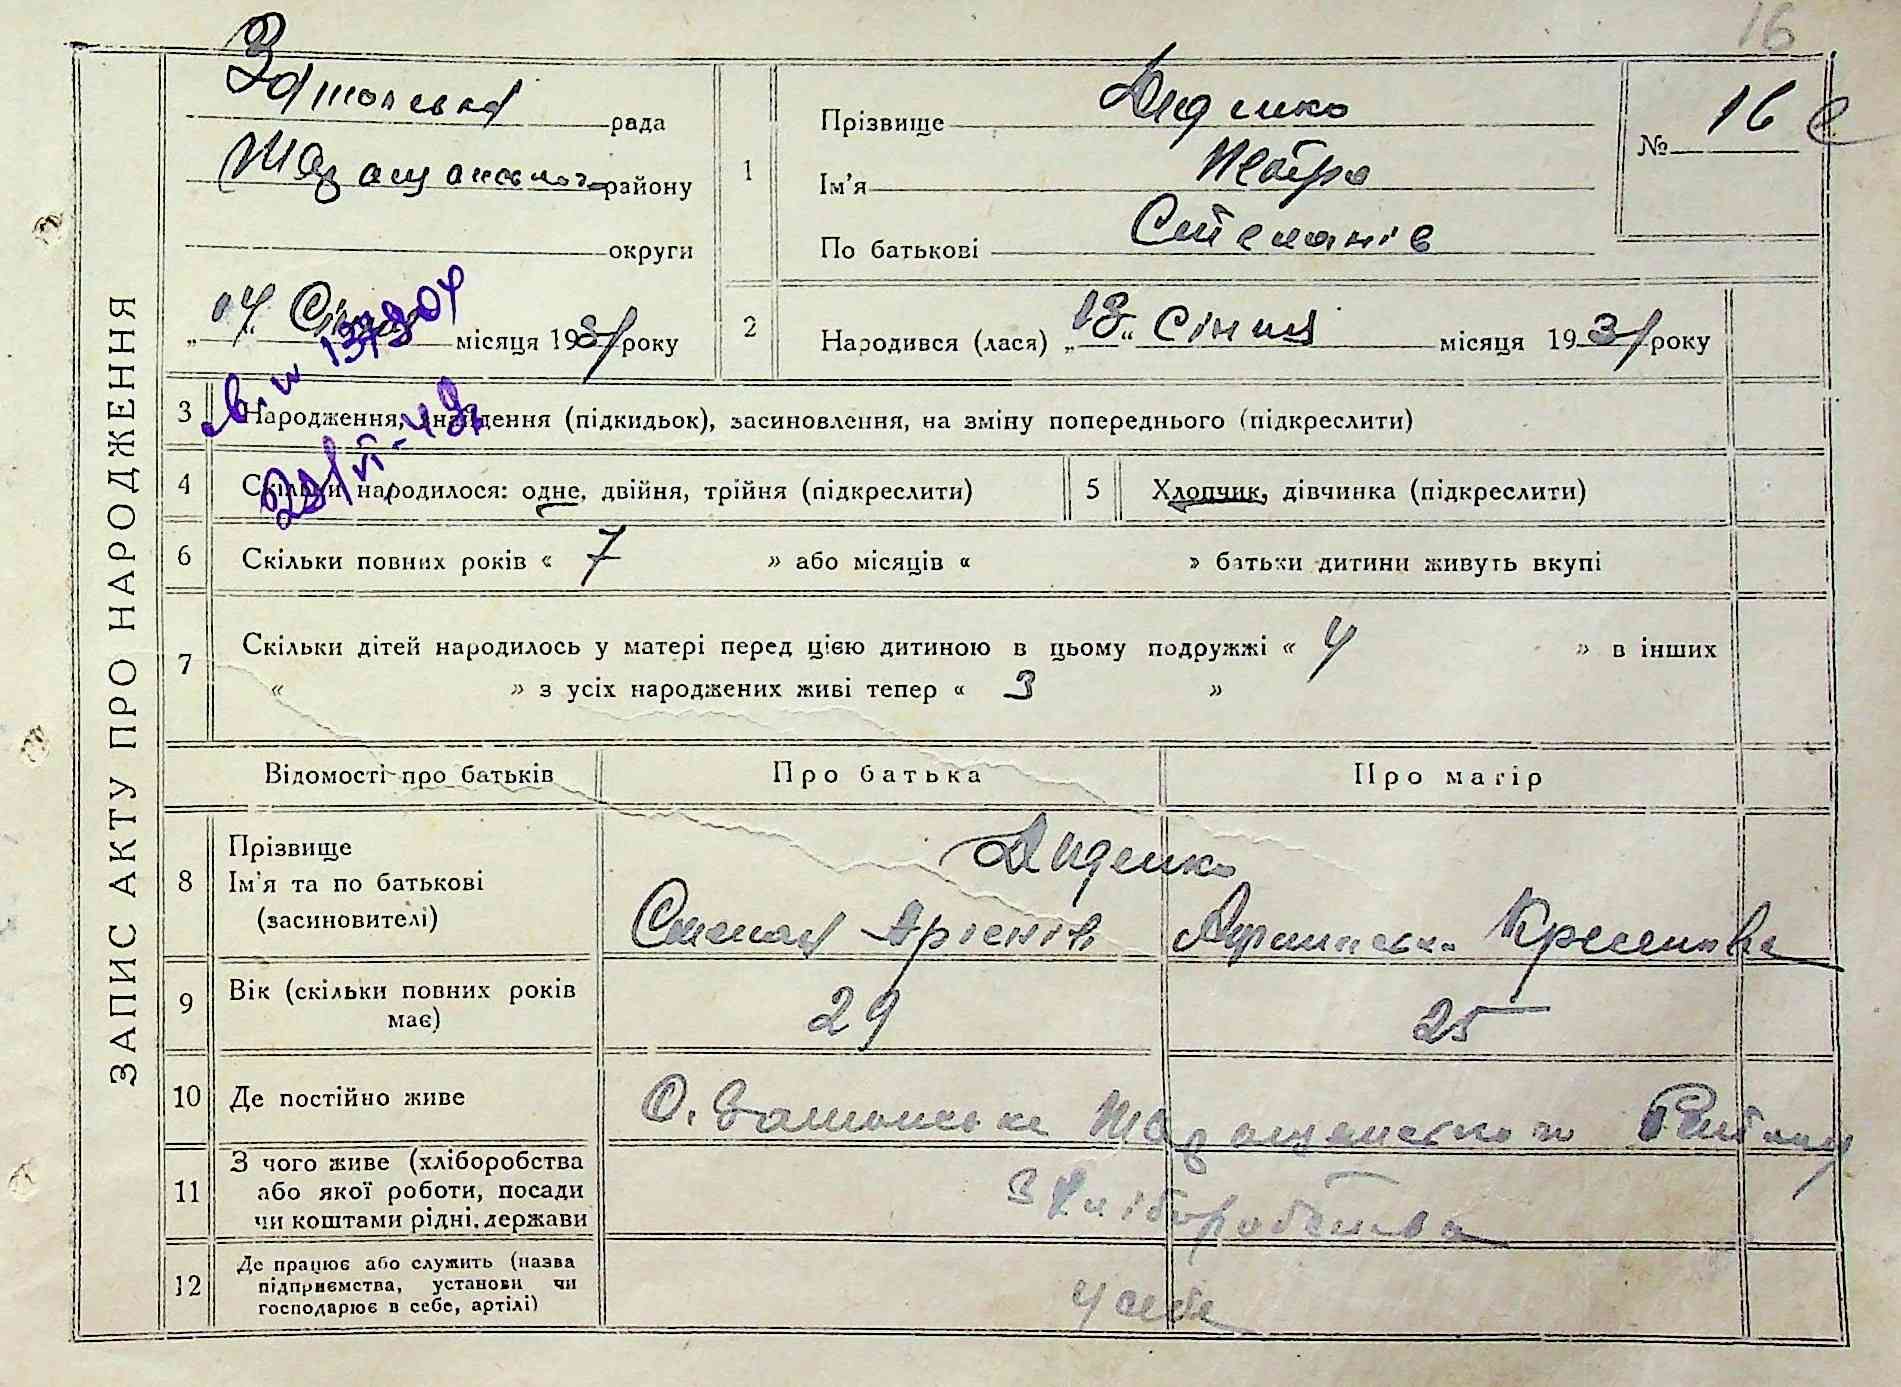 16
ЗАПИС АКТУ ПРО НАРОДЖЕННЯ
рада
району
округи
місяця 1931 року
1
Прізвище Диденко
Ім'я Петро
По батькові Степанів
№ 16
2
Народився (лася) „13“ Січня місяця 1931 року
3 Народження, знайдення (підкидьок), засиновлення, на зміну попереднього (підкреслити)
4 Скільки народилося: одне, двійня, трійня (підкреслити)
5 Хлопчик, дівчинка (підкреслити)
6 Скільки повних років « 7 » або місяців « » батьки дитини живуть вкупі
7 Скільки дітей народилось у матері перед цією дитиною в цьому подружжі « 4 » в інших
« » з усіх народжених живі тепер « 3 »
Відомості про батьків Про батька Про матір
8 Прізвище
Ім'я та по батькові
(засиновителі)
Диденко
Степан
9 Вік (скільки повних років
має)
29 25
10 Де постійно живе
Таращанського Району
11 З чого живе (хліборобства
або якої роботи, посади
чи коштами рідні, держави
З Хліборобства
12 Де працює або служить (назва
підприємства, установи чи
господарює в себе, артілі)
у себе